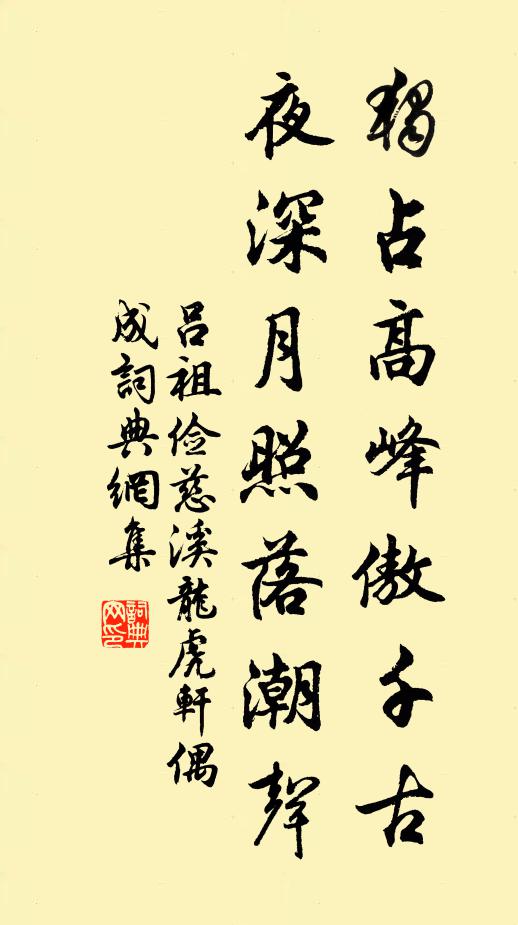 獨占高峰傲千古
夜深月照落潮聲
呂祖儉慈溪龍虎軒偶
成詞典網集
詞典网印